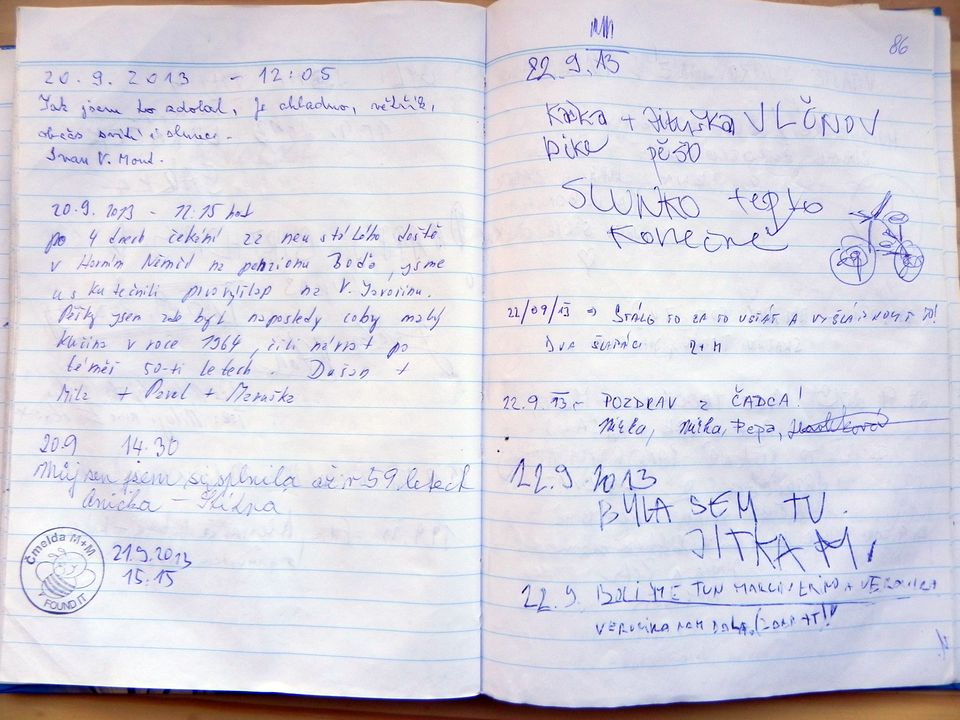 20.9.2013 - 12:05
Tak jsem to zdolal, je chladno, větřík,
občas svítí i slunce.
Ivan V. Mont.
20.9.2013 - 12.15 hod
po 4 dnech čekání za neustálého deště
v Horním Němčí na penzionu Boďa, jsme
uskutečnili prvovýšlap na V. Javorinu.
byl naposledy coby malý
kučina v roce 1964, čili návrat po
téměř 50-ti letech. Dušan +
Mila + Pavel + Maruška
20.9 14.30
Můj sen jsem si splnila až v 59 letech
Anička -
Čmelda M+M
FOUND IT
21.9.2013
15.15
86
22.9.13
Kačka + Jituška VLČNOV
bike pěšo
SLUNKO teplo
Konečně
22/09/13 => STÁLO TO ZA TO VSTÁT A VYŠLÁPNOUT TO!
DVA ŠLAPÁCI
22.9.13 - POZDRAV z ČADCA!
Mirka, Pepa,
22.9.2013
BYLA SEM TU
JITKA M.
22.9. BOLI ME TUN
VERONIKA NAM DALA